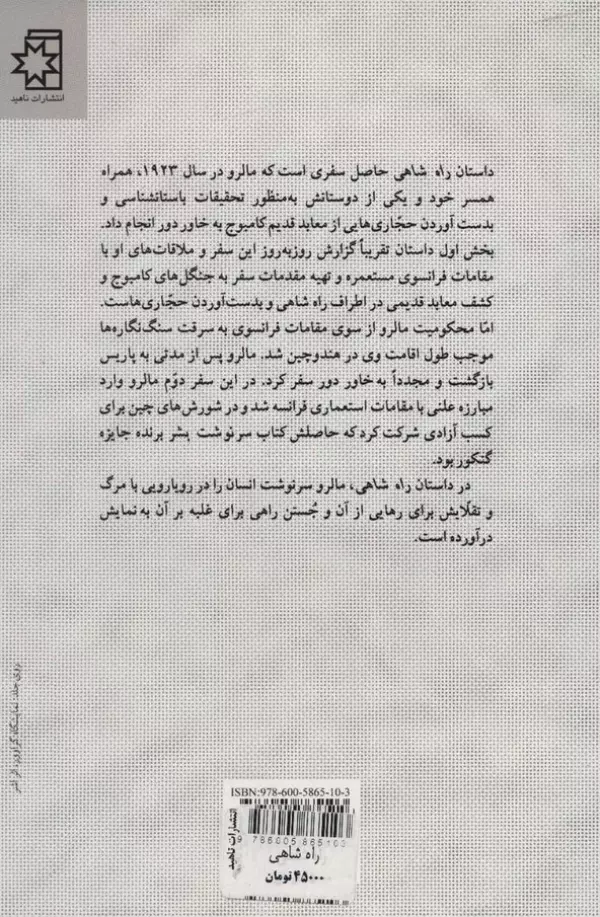 انتشارات ناهید
داستان راه شاهی حاصل سفری است که مالرو در سال ۱۹۲۳، همراه
همسر خود و یکی از دوستانش به‌منظور تحقیقات باستانشناسی و
بدست آوردن حجّاری‌هایی از معابد قدیم کامبوج به خاور دور انجام داد.
بخش اول داستان تقریباً گزارش روزبه‌روز این سفر و ملاقات‌های او با
مقامات فرانسوی مستعمره و تهیه مقدمات سفر به جنگل‌های کامبوج و
کشف معابد قدیمی در اطراف راه شاهی و بدست‌آوردن حجّاری‌هاست.
امّا محکومیت مالرو از سوی مقامات فرانسوی به سرقت سنگ‌نگاره‌ها
موجب طول اقامت وی در هندوچین شد. مالرو پس از مدتی به پاریس
بازگشت و مجدداً به خاور دور سفر کرد. در این سفر دوّم مالرو وارد
مبارزه علنی با مقامات استعماری فرانسه شد و در شورش‌های چین برای
کسب آزادی شرکت کرد که حاصلش کتاب سرنوشت بشر برنده جایزه
گنکور بود.
در داستان راه شاهی، مالرو سرنوشت انسان را در رویارویی با مرگ
و تقلّایش برای رهایی از آن و جُستن راهی برای غلبه بر آن به نمایش
درآورده است.
روی جلد: نمایشگاه گراوور، اثر اشر
ISBN:978-600-5865-10-3
انتشارات ناهید
9 786005 865103
راه شاهی
۴۵۰۰۰ تومان